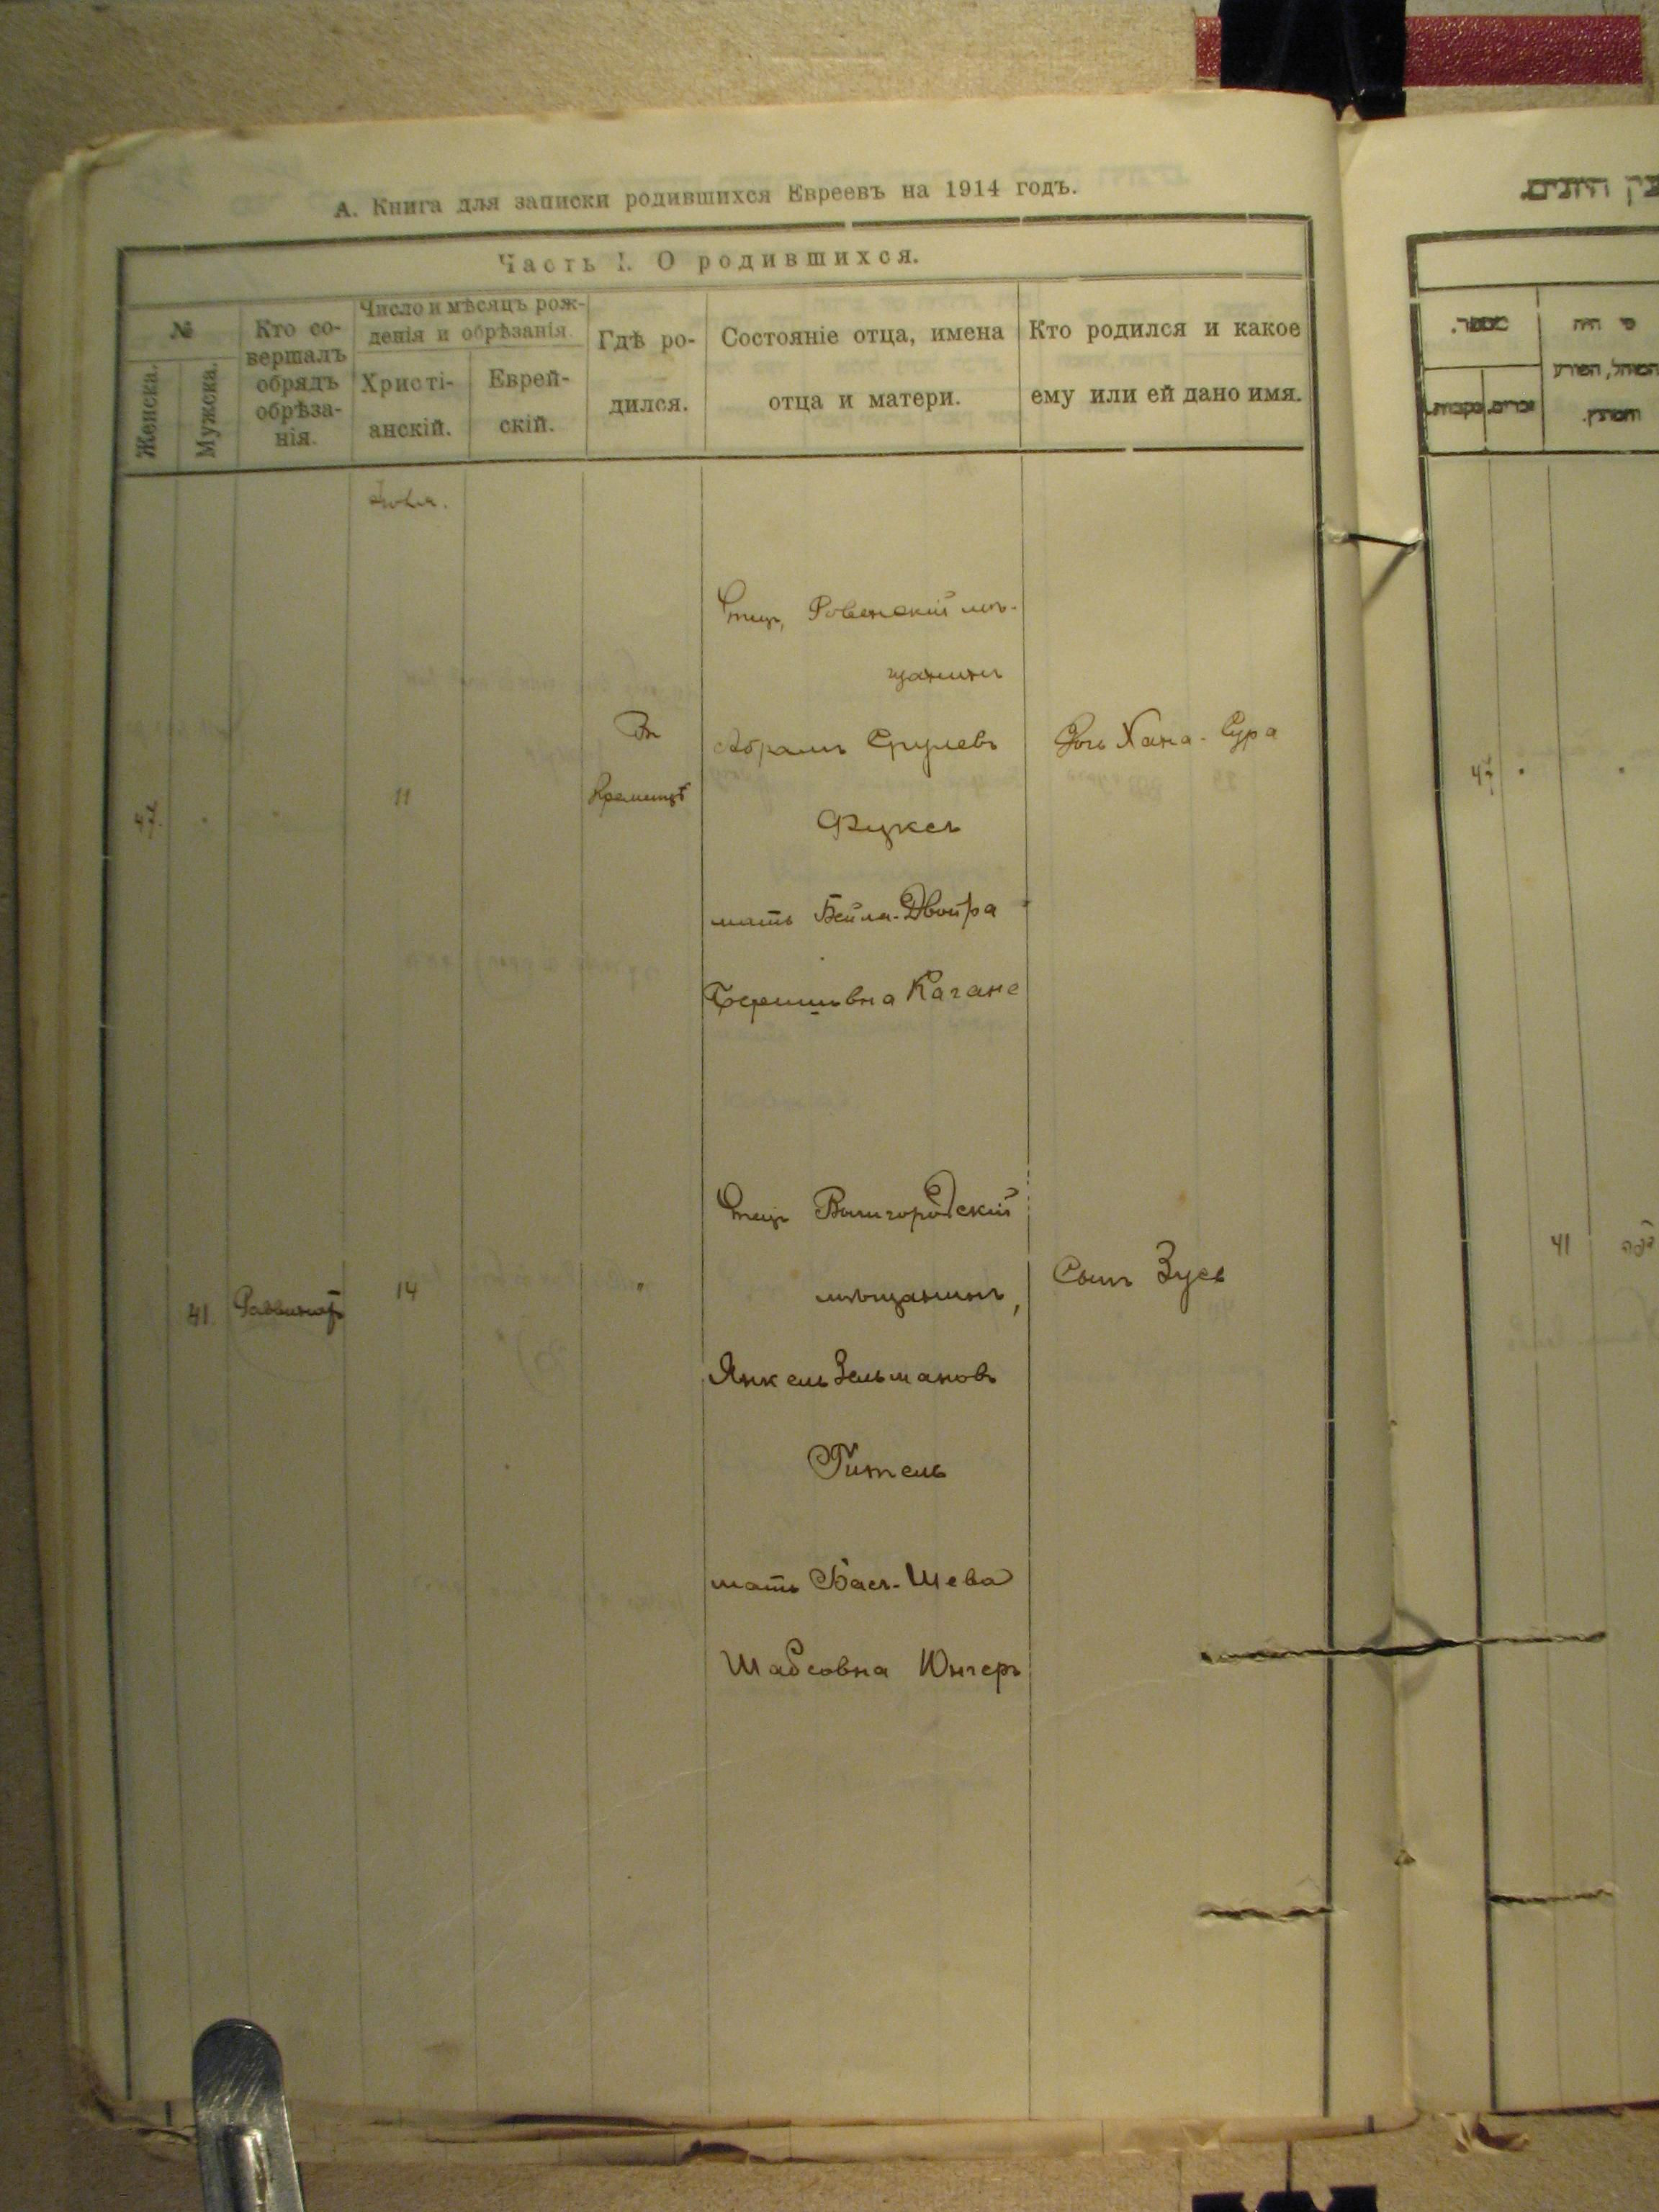 А. Книга для записки родившихся Евреевъ на 1914 годъ.
Часть I. О родившихся.
№
Женска.
Мужска.
Кто со-
вершалъ
обрядъ
обрѣза-
нія.
Число и мѣсяцъ рож-
денія и обрѣзанія.
Христі-
анскій.
Еврей-
скій.
Гдѣ ро-
дился.
Состояніе отца, имена
отца и матери.
Кто родился и какое
ему или ей дано имя.
47.
11
Въ
Кременцѣ
Отецъ, Ровенскій мѣ-
щанинъ
Абрамъ Срулевъ
Фуксъ
мать Бейла-Двойра
Кагане
Дочь Хана-Сура
41
14
"
Отецъ Вышгородскій
мѣщанинъ,
Янкель Зельмановъ
Гитель
мать Бася-Шева
Шабсовна Юнгеръ
Сынъ Зусь
מספר.
מי היה
47
41